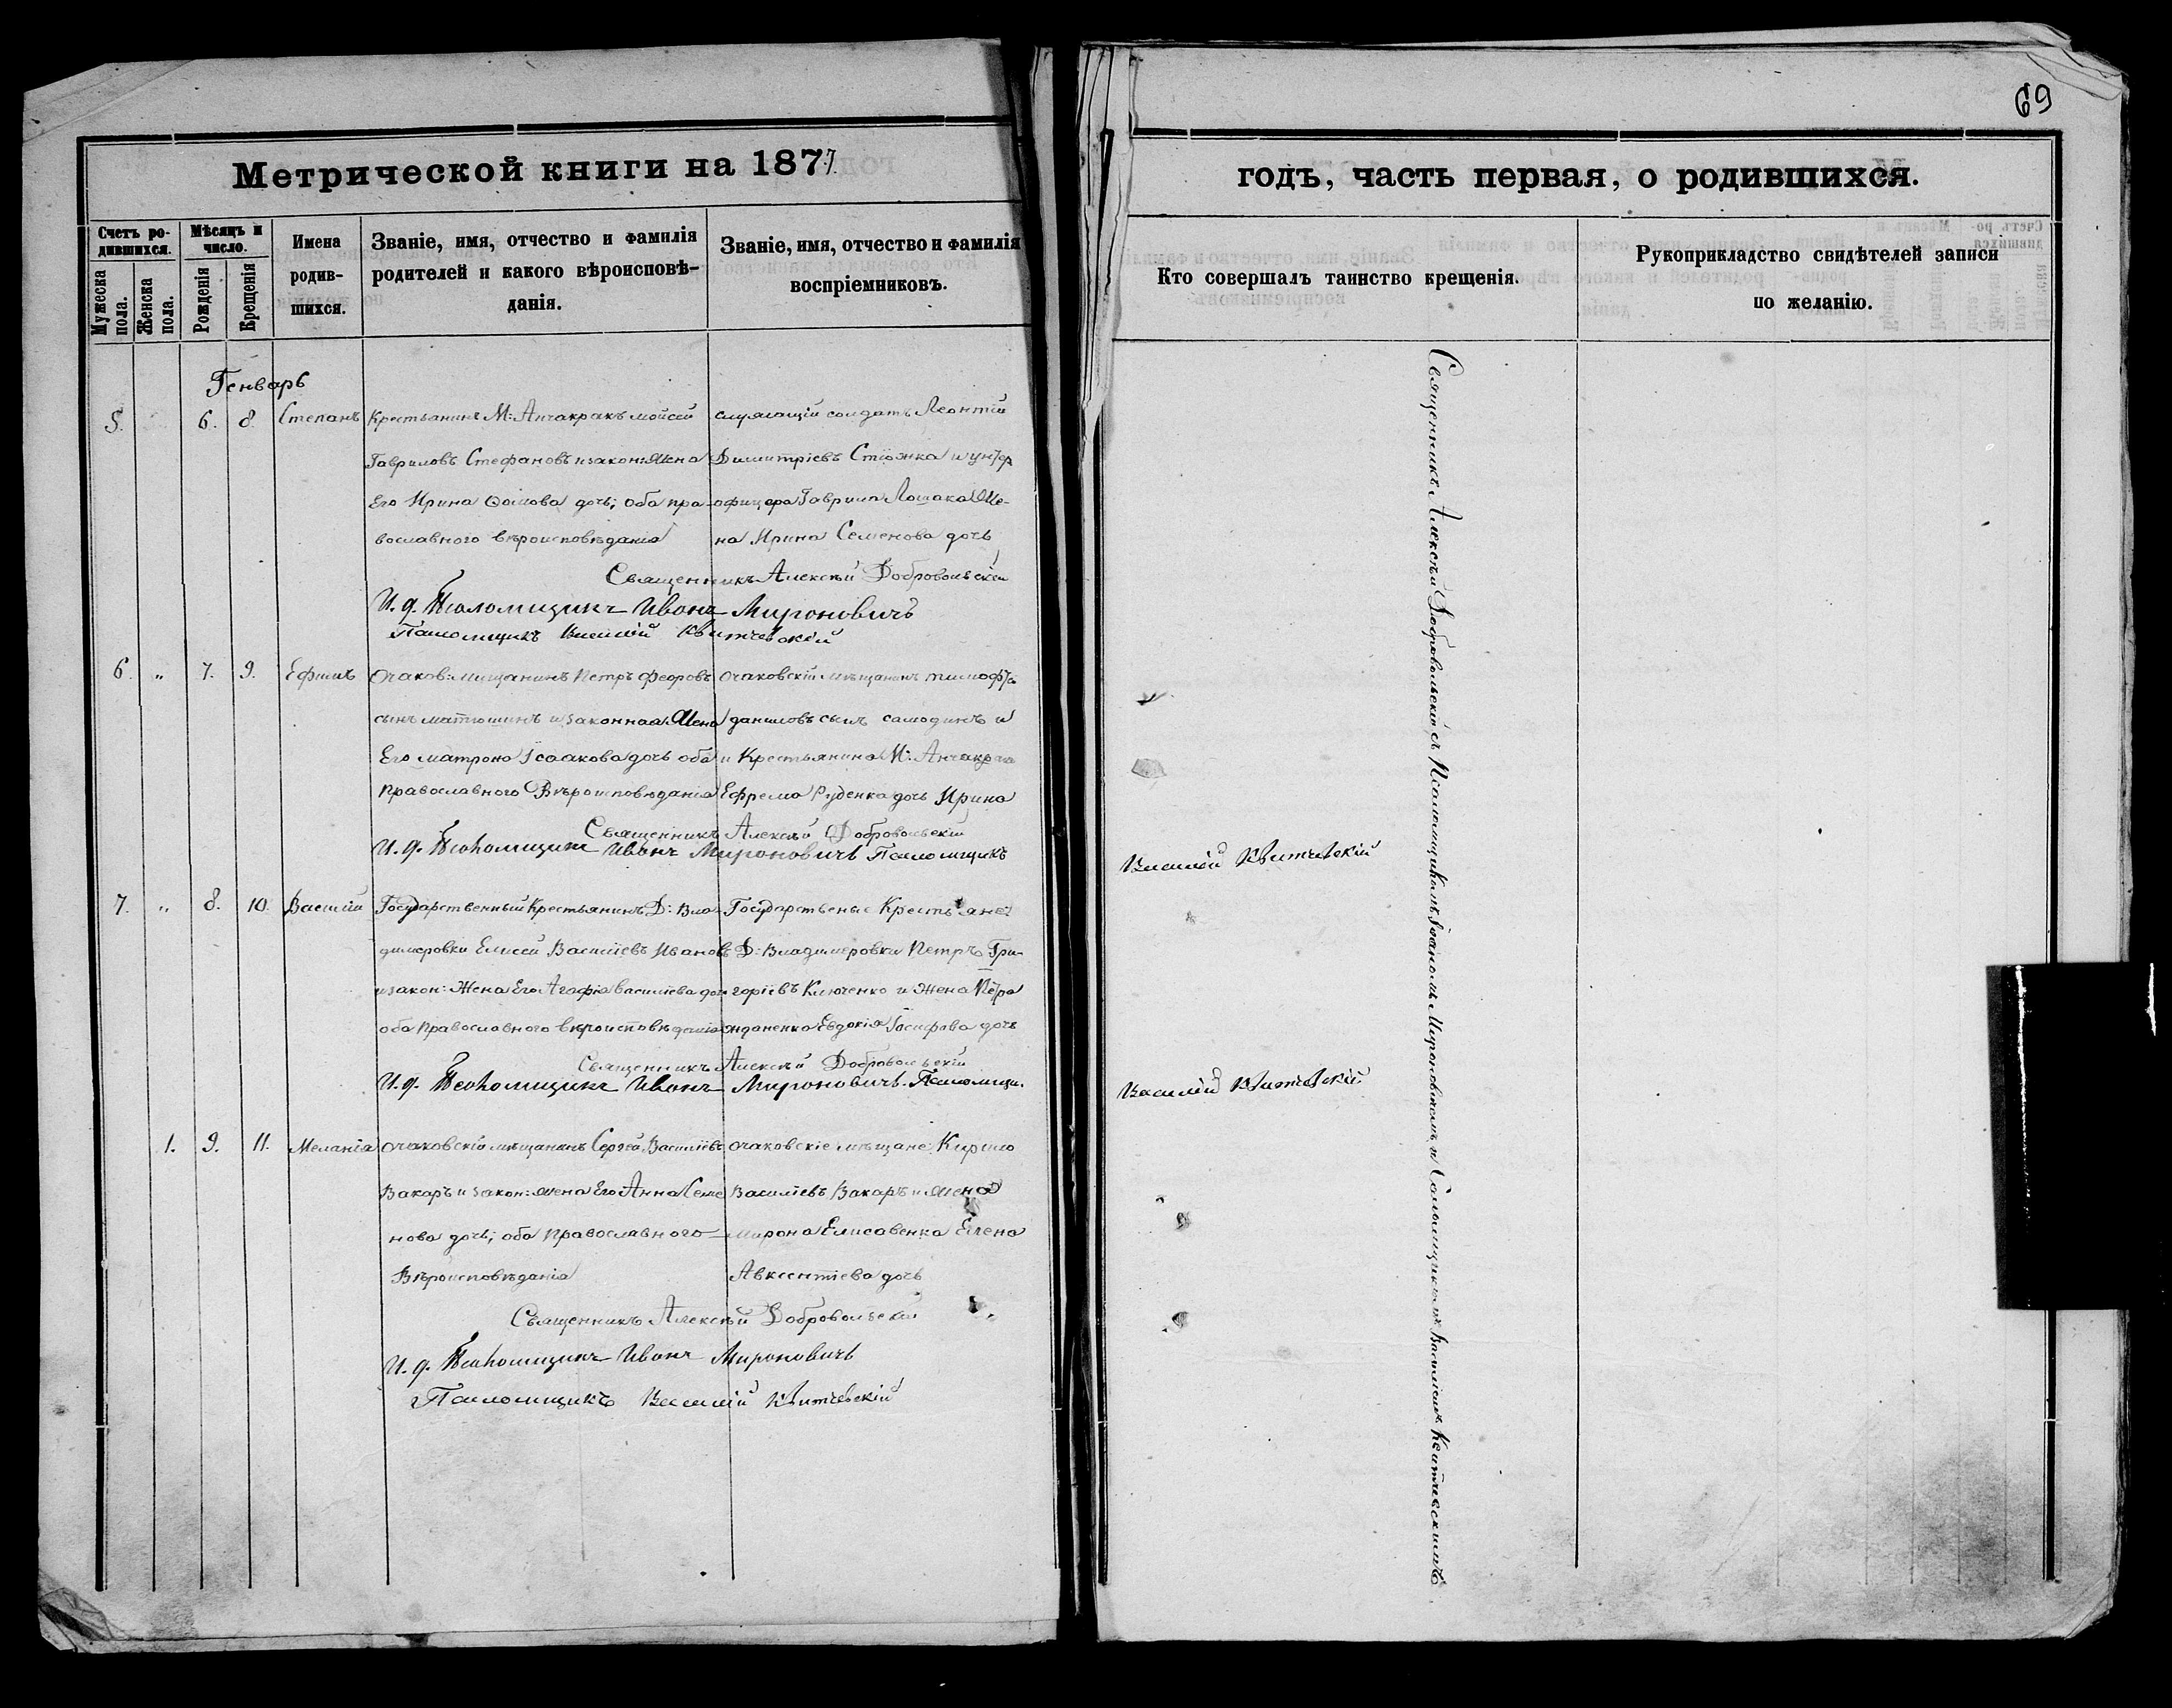 69
Метрической книги на 1877.
годъ, часть первая, о родившихся.
Счетъ ро-
дившихся.
Мужеска пола.
Женска пола.
Мѣсяцъ и
число.
Рожденія
Крещенія
Имена
родив-
шихся.
Званіе, имя, отчество и фамилія
родителей и какого вѣроисповѣ-
данія.
Званіе, имя, отчество и фамилія
воспріемниковъ.
Кто совершалъ таинство крещенія.
Рукоприкладство свидѣтелей записи
по желанію.
Генварь
5. 6. 8. Степанъ
Крестьанинъ М: Анчакракъ Мойсей
Гавриловъ Стефановъ и закон: жена
Его Ирина дочь; оба пра-
вославного вѣроисповѣданія
служащій солдатъ Леонтій
Димитріевъ и унтер
офицера Гаврила Лошака Же-
на Ирина Семенова дочь
Священникъ Алексѣй Добровольскій
И. д. Псаломщика Иванъ Мироновичъ
Псаломщикъ Василій Квитчевскій
6. „ 7. 9. Ефимъ
Очаков: мищанинъ Петръ Феоровъ
сынъ Матюшинъ и законная Жена
Его Матрона Ісаакова дочь оба
Православного Вѣроисповѣданія
Очаковскій мѣщанинъ Тимофѣй
Даниловъ сынъ Самодинъ и
и Крестьянина М: Анчакрака
Ефрема Руденка дочь Ирина
Священникъ Алексѣй Добровольскій
И. д. Псаломщика Иванъ Мироновичъ Псаломщикъ
Василій Квитчевскій
7. „ 8. 10. Василій
Государственный Крестьянинъ Д: Вла-
димеровки Елисей Василіевъ Ивановъ
и закон: Жена Его Агафія Василіева доч
оба Православного вѣроисповѣданія
Государственые Крестьяне:
Д: Владимеровки Петръ Гри-
горіевъ Ключенко и Жена Петра
Евдокія Іосифова дочь
Священникъ Алексѣй Добровольскій
И. д. Псаломщика Иванъ Мироновичъ. Псаломщи.
Василій Квитчевскій
1. 9. 11. Меланія
Очаковскій мѣщанинъ Сергей Василіевъ
Вакаръ и закон: жена Его Анна Семе
нова дочь; оба Православного
Вѣроисповѣданія
Очаковскіе мѣщане: Кирило
Василіевъ Вакаръ и жена
Мирона Елисавенка Елена
Авксентіева дочь
Священникъ Алексѣй Добровольскій
И. д. Псаломщика Иванъ Мироновичъ
Псаломщикъ Василій Квитчевскій
Священникъ Алексѣй Добровольскій съ Псаломщикомъ Іоаномъ Мироновичемъ и Псаломщикомъ Василіемъ Квитчевскимъ